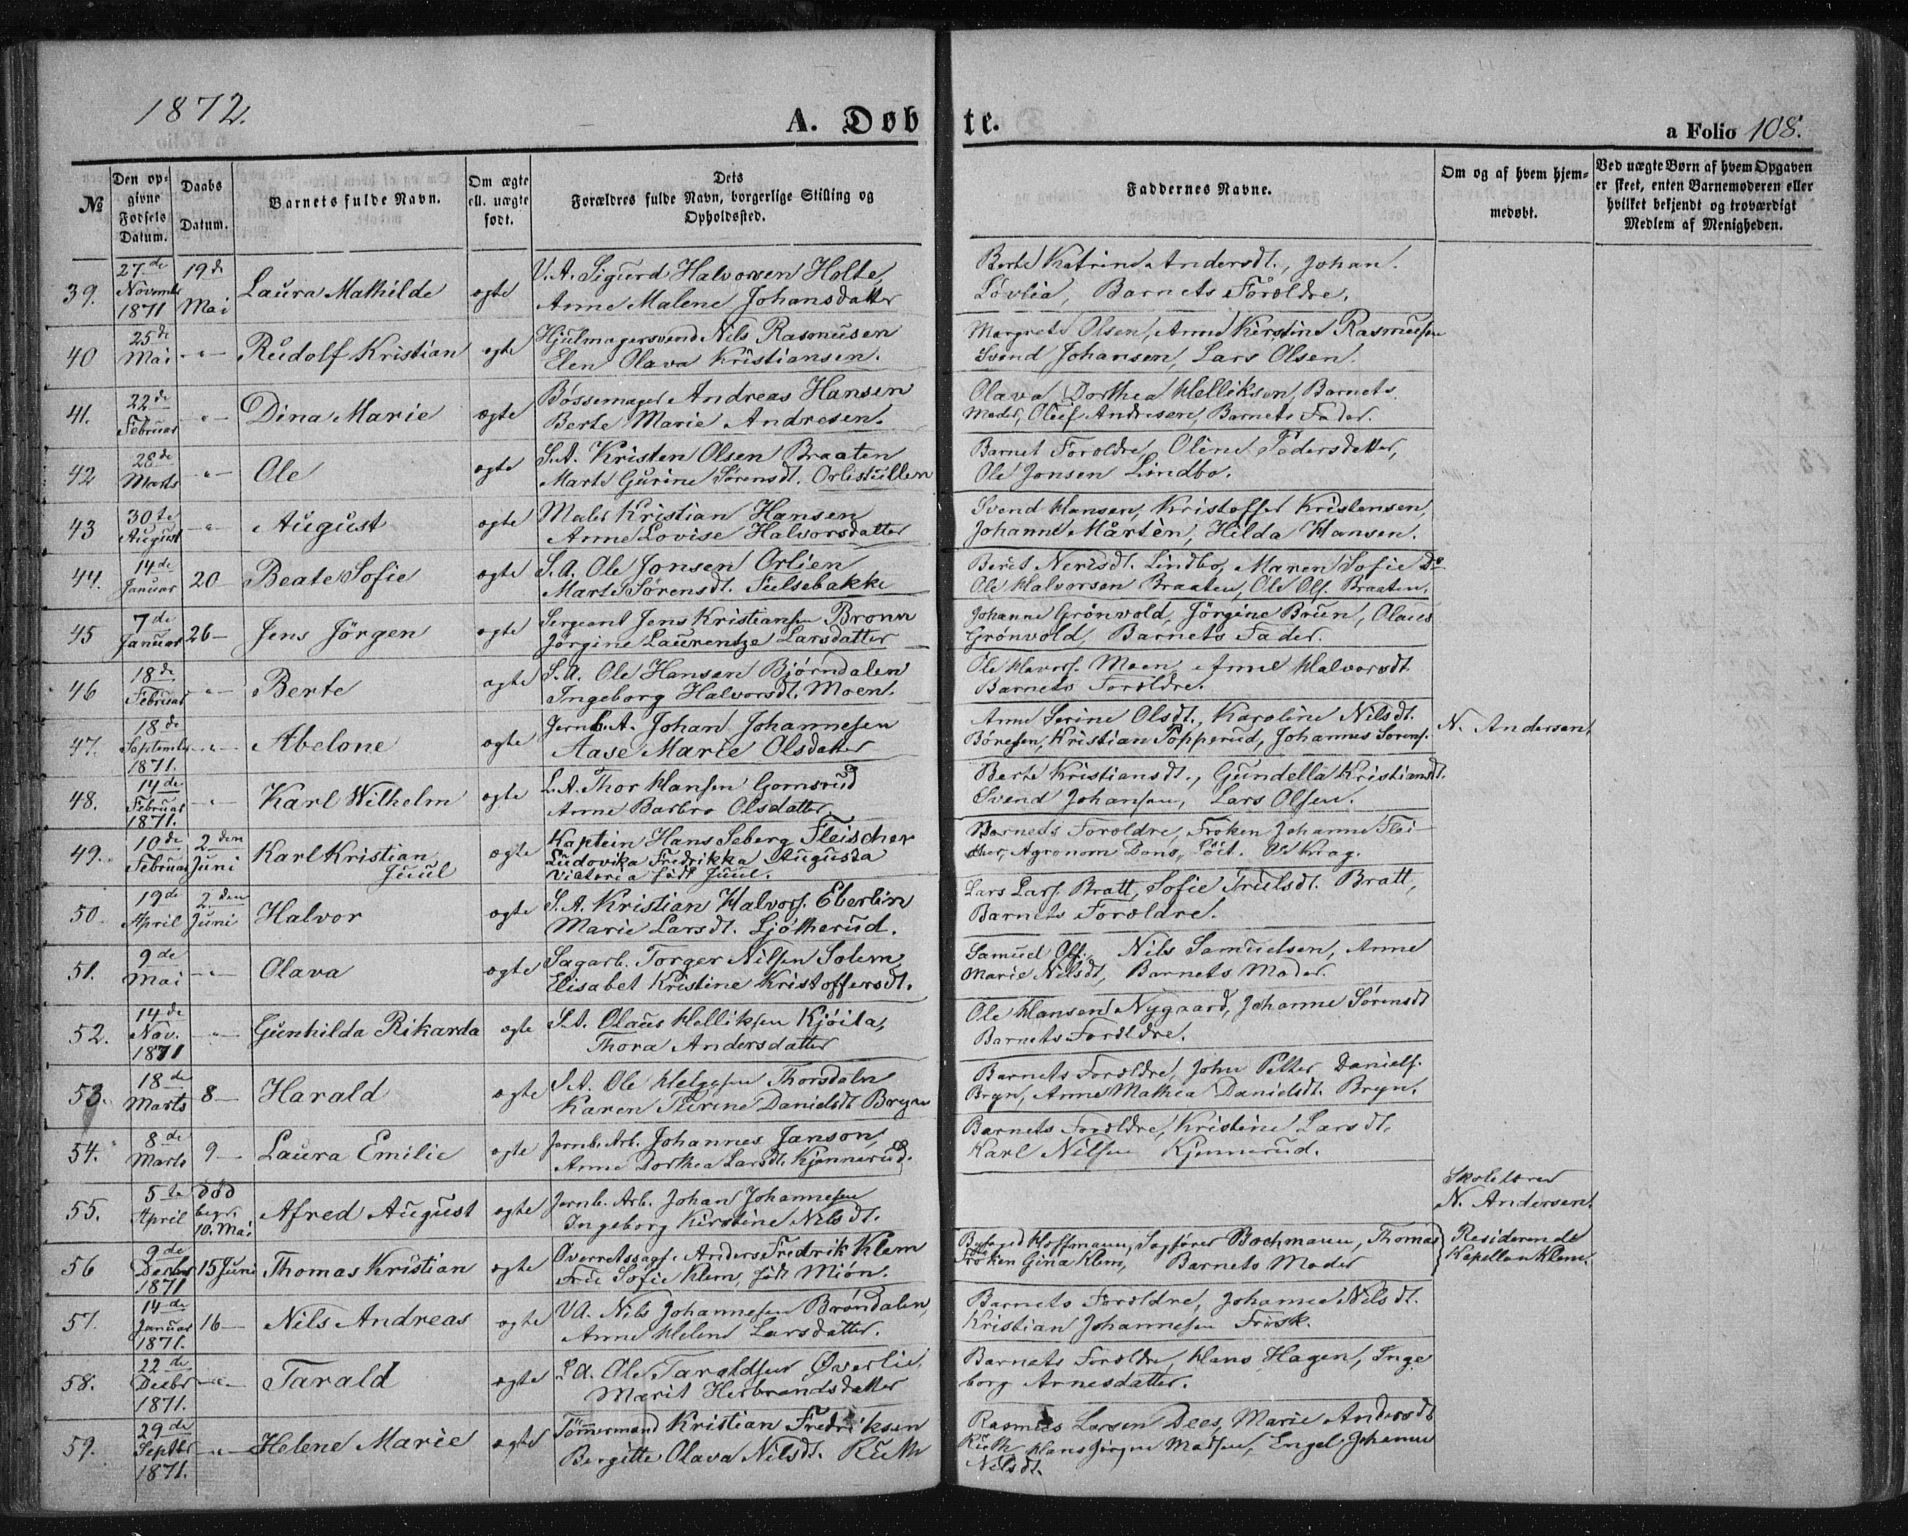 1872.
A. Døbte.
a Folio 108.
№
Den opgivne Fødsels Datum.
Daabs Datum.
Barnets fulde Navn.
Om ægte ell. uægte født.
Dets Forældres fulde Navn, borgerlige Stilling og Opholdssted.
Faddernes Navne.
Om og af hvem hjemmedøbt.
Ved uægte Børn af hvem Opgaven er skeet, enten Barnemoderen eller hvilket bekjendt og troværdigt Medlem af Menigheden.
39. 27de Novembr 1871 19de Mai Laura Mathilde ægte V.A. Sigurd Halvorsen Holte,
Anne Malene Johansdatter
Berte Katrine Andersdt., Johan
Løvlia, Barnets Forældre.
40 25de Mai -"- Rudolf Kristian ægte Hjulmagersvend Nils Rasmusen
Elen Olava Kristiansen.
Margrete Olsen, Anne Kirstine Rasmusen
Svend Johansen, Lars Olsen.
41. 22de Februar " Dina Marie ægte Bøssemager Andreas Hansen
Berte Marie Andresen.
Olava Dorthea Helliksen, Barnets
Moder, Oluf Andresen, Barnets Fader.
42 28de Marts -"- Ole ægte S.A. Kristen Olsen Braaten
Marte Gurine Sørensdt. Orlistullen
Barnet Forældre, Oline Pedersdatter,
Ole Jonsen Lindbo.
43 30te August -"- August ægte Maler Kristian Hansen
Anne Lovise Halvorsdatter
Svend Hansen, Kristoffer Kristensen,
Johanne Mårtèn, Hilda Hansen.
44. 14de Januar 20 Beate Sofie ægte S.A. Ole Jonsen Orlien
Marte Sørensdt. Fielsebakke
Beret Nerisdt. Lindbo, Maren Sofie Do
Ole Halvorsen Braaten, Ole Ols. Braaten.
45 7de Januar 26 Jens Jörgen ægte Sergeant Jens Kristiansen Bronn
Jörgine Laurentze Larsdatter
Johanne Grönvold, Jörgine Brun, Olaus
Grönvold, Barnets Fader.
46 18de Februar -"- Berte ægte S.A. Ole Hansen Bjørndalen
Ingeborg Halvorsdt. Moen.
Ole Havors. Moen, Anne Halvorsdt
Barnets Forældre.
47. 18de September 1871. -"- Abelone ægte Jernb.A. Johan Johannesen
Aase Marie Olsdatter
Anne Serine Olsdt., Karoline Nilsdt.
Böresen, Kristian Popperud, Johannes Sorens.
N. Andersen.
48. 14de Februar 1871. -"- Karl Wilhelm ægte L.A. Thor Hansen Gomsrud
Anne Barbro Olsdatter
Berte Kristiansdt., Gundella Kristiansdt.
Svend Johansen, Lars Olsen.
49. 10de Februar 2den Juni Karl Kristian Juul ægte Kaptein Hans Seberg Fleischer
Ludovika Fredrikka Augusta
Victoria født Juul.
Barnets Forældre, Frøken Johanne Fleischer,
Agronom Dons, Löit. Krag.
50. 19de April 2den Juni Halvor ægte S.A. Kristian Halvors. Eberlin
Marie Larsdt. Ljötherud.
Lars Lars. Bratt, Sofie Trulsdt. Bratt,
Barnets Forældre.
51. 9de Mai -"- Olava ægte Sagarb. Torger Nilsen Solem
Elisabet Kristine Kristoffersdt.
Samuel Ols., Nils Samuelsen, Anne
Marie Nilsdt, Barnets Moder.
52. 14de Nov. 1871 " Gunhilda Rikarda ægte S.A. Olaus Helliksen Kjöita,
Thora Andersdatter
Ole Hansen Nygaard, Johanne Sørensdt
Barnets Forældre.
53. 18de Marts 8 Harald ægte S.A. Ole Helgesen Thorsdaln
Karen Thrine Danielsdt Bryn
Barnets Forældre, John Petter Daniels.
Bryn, Anne Mathea Danielsdt. Bryn.
54. 8de Marts 9 Laura Emilie ægte Jernb. Arb. Johannes Janson,
Anne Dorthea Larsdt. Kjennerud.
Barnets Forældre, Kristine Larsdt.
Karl Nilsen Kjennerud.
55. 5te April død begr. 10. Mai Afred August ægte Jernb. Arb. Johan Johannesen
Ingeborg Kirstine Nilsdt.
Skolelærer
N. Andersen.
56 9de Decbr 1871 15 Juni Thomas Kristian ægte Overretssagf. Anders Fredrik Klem
Frue Sofie Klem, født Miön.
Byfoged Hoffmann, Sagfører Bachmann, Thomas
Frøken Gina Klem, Barnets Moder
Residerende
Kapellan Klem.
57. 14de Januar 1871. 16 Nils Andreas ægte V.A. Nils Johannesen Brøndalen,
Anne Helene Larsdatter.
Barnets Forældre, Johanne Nilsdt.
Kristian Johannesen Frisk.
58. 22de Decbr 1871. -"- Tarald ægte S.A. Ole Taraldsen Øverlie
Marit Herbrandsdatter
Barnets Forældre, Hans Hagen, Inge
borg Arnesdatter.
59. 29de Septbr 1871. -"- Helene Marie ægte Tömmermand Kristian Fredriksen
Bergitte Olava Nilsdt. Ruth
Rasmus Larsen Dees, Marie Andersdt
Ruth, Hans Jörgen Madsen, Engel Johanne
Nilsdt.